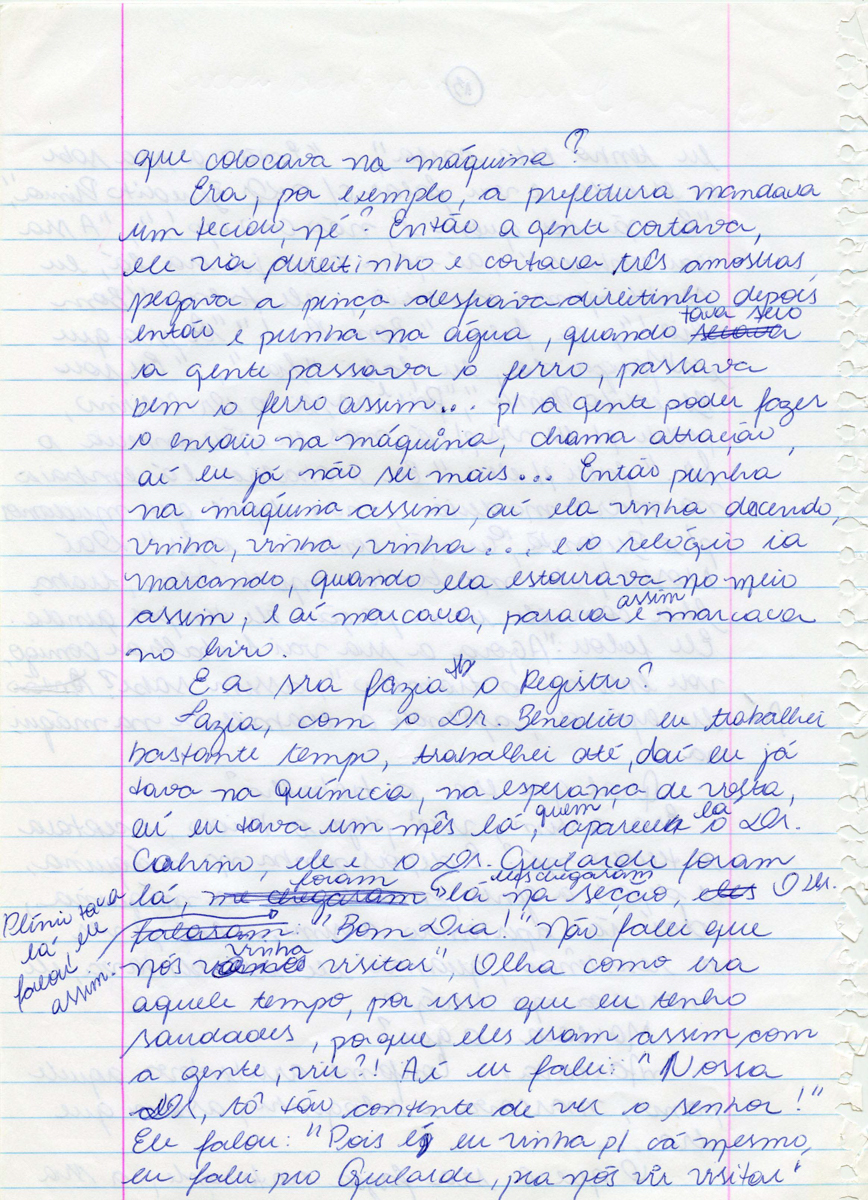 que colocava na máquina?
Era, por exemplo, a prefeitura mandava
um tecido, né? Então a gente cortava,
ele via direitinho e cortava três amostras,
pegava a pinça desfiava direitinho depois
então e punha na água, quando tava seco
a gente passava o ferro, passava
bem o ferro assim... p/ a gente poder fazer
o ensaio na máquina, chama atração,
aí eu já não sei mais... Então punha
na máquina assim, aí ela vinha decendo,
vinha, vinha, vinha... e o relógio ia
marcando, quando ela estourava no meio
assim, e aí marcava, parava assim e marcava
no livro.
E a sra fazia o Registro?
Fazia, com o Dr. Benedito eu trabalhei
bastante tempo, trabalhei até, daí eu já
tava na química, na esperança de volta,
aí eu tava um mês lá, quem apareceu lá o Dr.
Calvino, ele e o Dr. Guilardi foram
lá, foram lá eles chegaram na secção, O Dr.
Plínio tava
lá eu
falou
assim:
"Bom Dia!" "Não falei que
nós vinha visitar", Olha como era
aquele tempo, por isso que eu tenho
saudades, porque eles eram assim com
a gente, viu?! Aí eu falei: "Nossa
Dr, tô tão contente de ver o senhor!"
Ele falou: "Pois é, eu vinha p/ cá mesmo,
eu falei pro Guilardi, pra nós vir visitar"